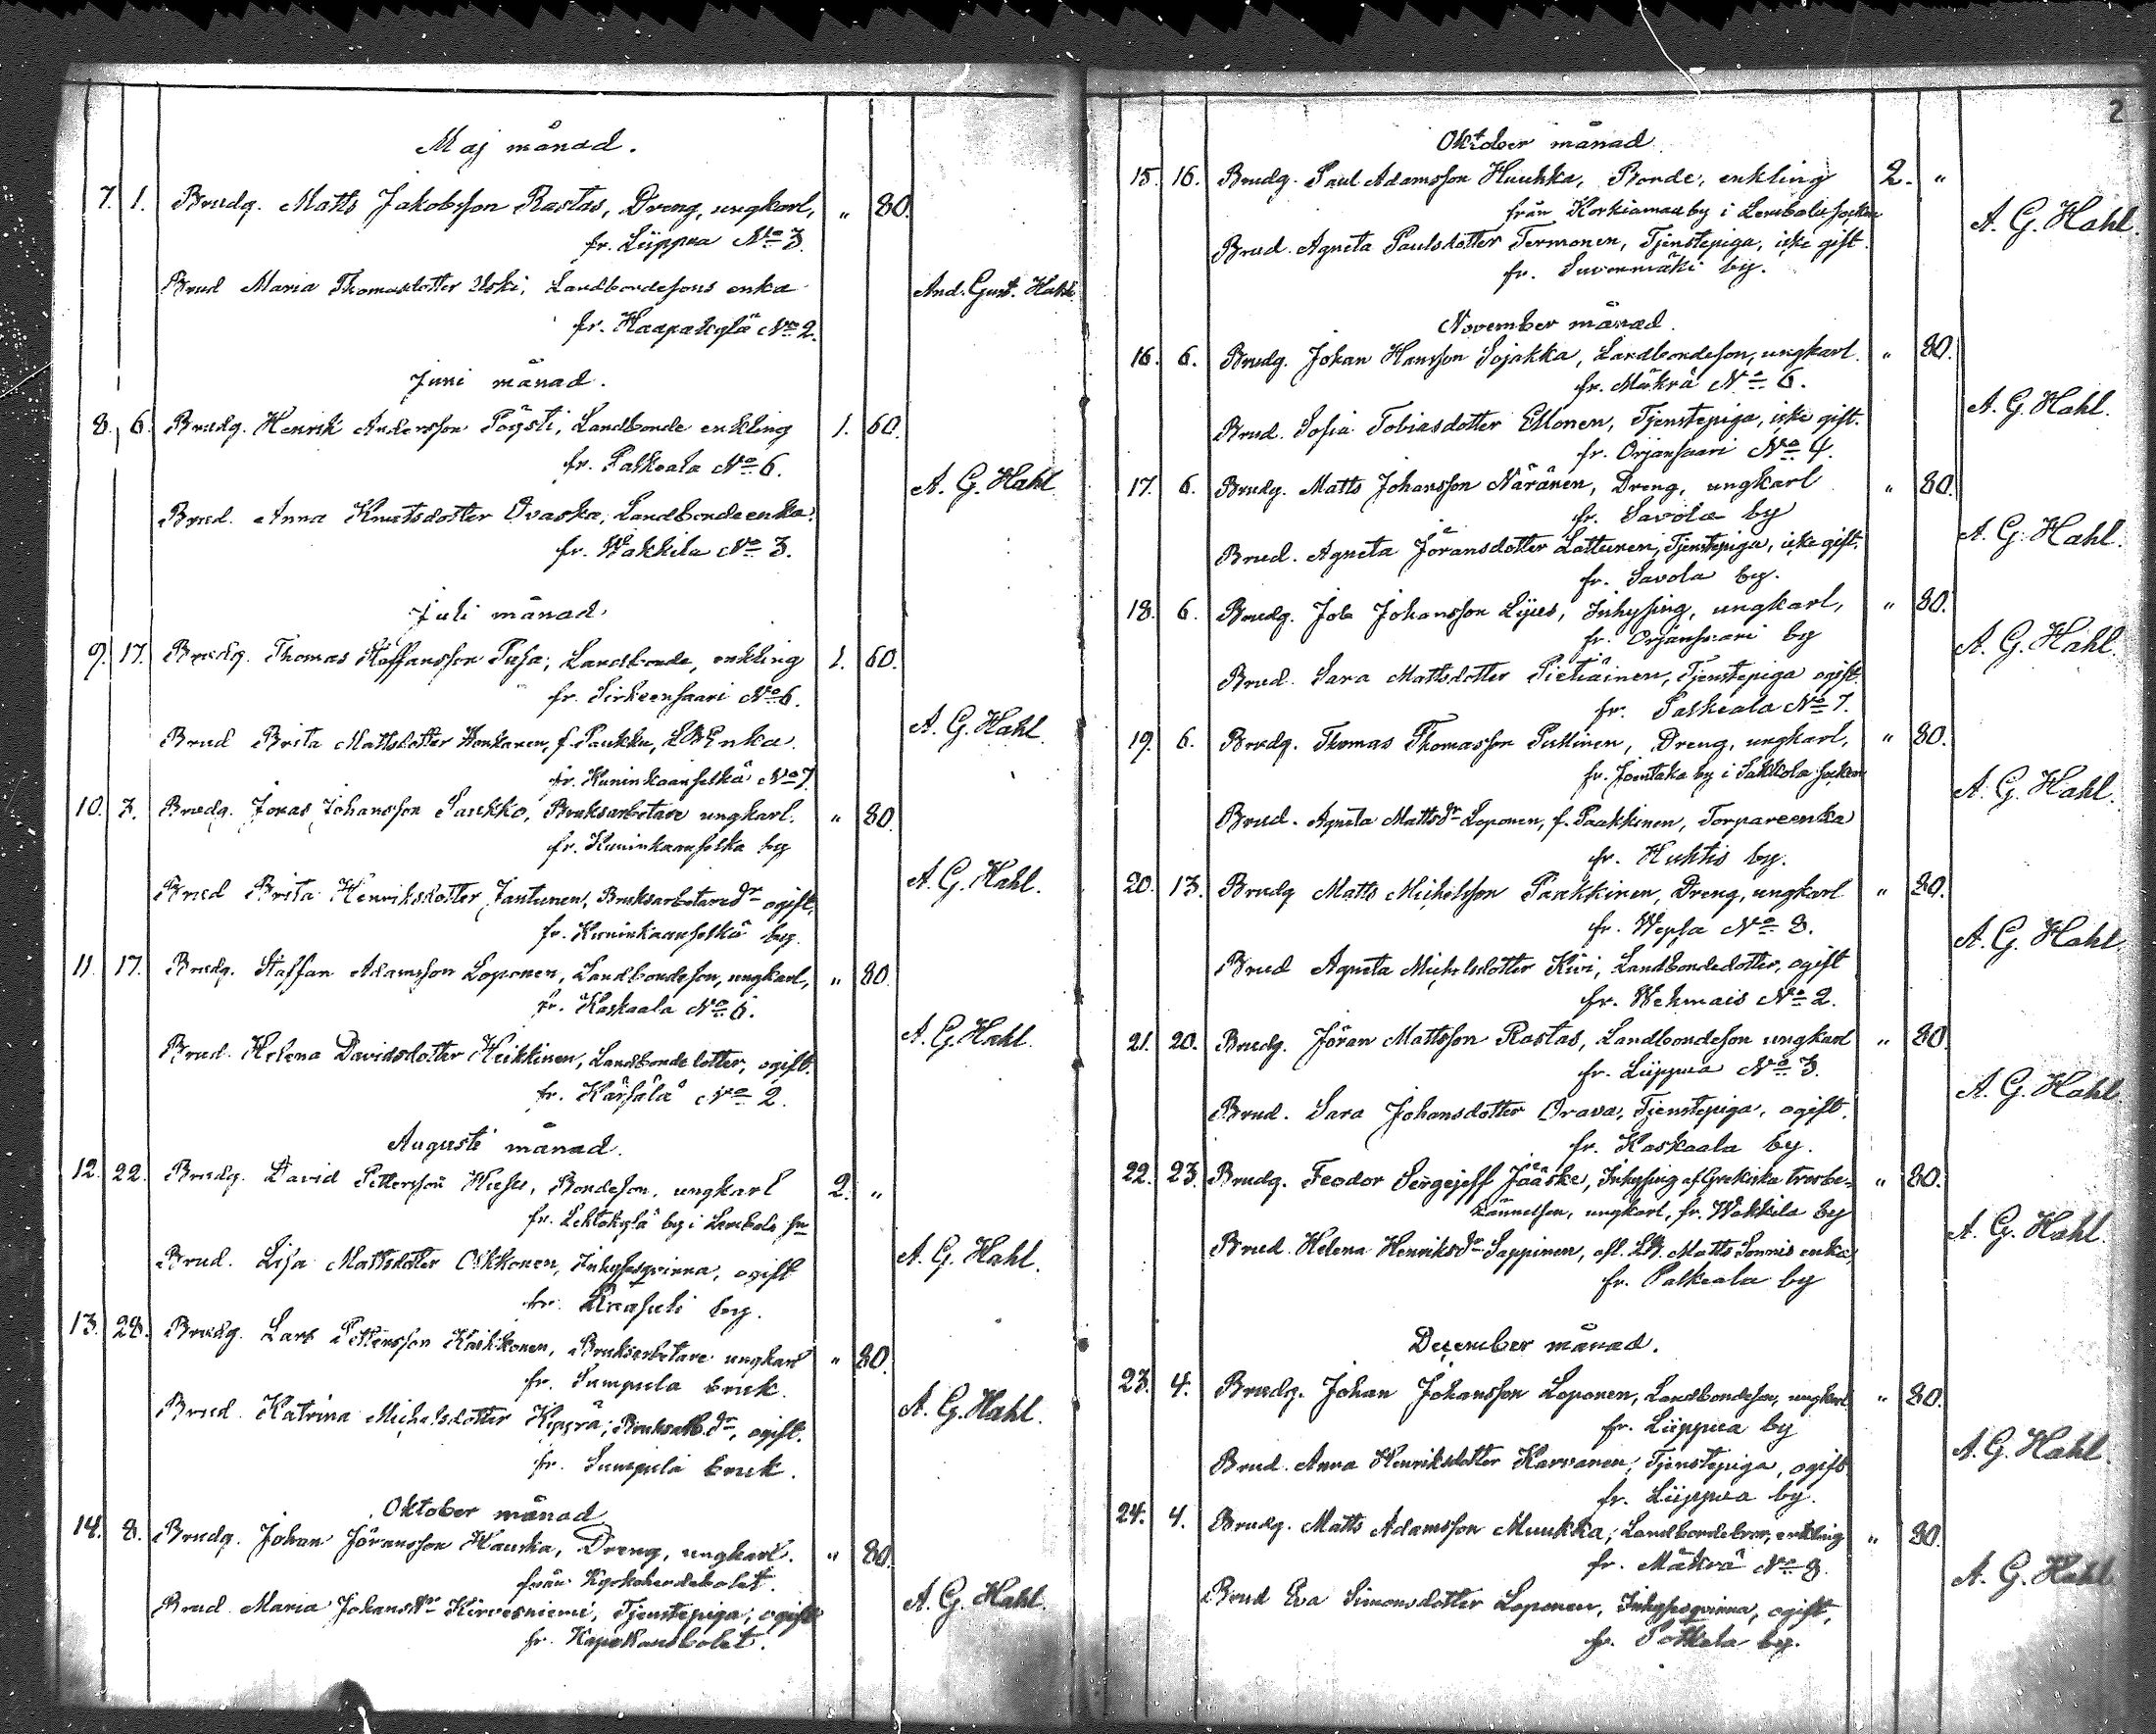 Maj månad.
7. 1. Brudg. Matts Jakobsson Rastas, Dreng, ungkarl, " 80.
fr. Liippua No 3.
Brud Maria Thomasdotter Uski, Landbondesons enka
And. Gust. Hahl.
fr. Haapakylä No 2.
Juni månad.
8. 6. Brudg. Henrik Andersson Pöysti, Landbonde enkling 1. 60.
fr. Palkeala No 6.
A. G. Hahl
Brud. Anna Knutsdotter Ovaska, Landbondeenka.
fr. Wakkila No 3.
Juli månad.
9. 17. Brudg. Thomas Staffansson Pusa, Landbonde, enkling 1. 60.
fr. Sirkeensaari No 6.
A. G. Hahl.
Brud Brita Mattsdotter Honkanen, f. Paukku, LBEnka.
fr. Kuninkaanselkä No 7
10. 3. Brudg. Jonas Johansson Saukko, Bruksarbetare ungkarl. " 80.
fr. Kuninkaanselka by
A. G. Hahl.
Brud Brita Henriksdotter Jantunen, Bruksarbetaredr ogift,
fr. Kuninkaanselkä by.
11. 17. Brudg. Staffan Adamsson Loponen, Landbondeson, ungkarl, " 80.
fr. Kaskaala No 6.
A. G. Hahl.
Brud. Helena Davidsdotter Heikkinen, Landbondedotter, ogift.
fr. Kärsälä No 2.
Augusti månad.
12. 22. Brudg. David Pettersson Husu, Bondeson, ungkarl 2. "
fr. Lehtokylä by i Lembala sn
A. G. Hahl.
Brud. Lisa Mattsdotter Oikkonen, Inhysesqvinna, ogift
fr. by.
13. 28. Brudg. Lars Pettersson Kaikkonen, Bruksarbetare ungkarl " 80.
fr. Sumpula bruk.
A. G. Hahl.
Brud. Katrina Michelsdotter Kippra, Bruksarb.dr, ogift.
fr. Sumpula bruk.
Oktober månad
14. 8. Brudg. Johan Jöransson Hauska, Dreng, ungkarl. " 80.
från Kyrkoherdebolet.
A. G. Hahl.
Brud. Maria Johansdr Kirvesniemi, Tjenstepiga, ogift
fr. Kapellansbolet.
2
Oktober månad
15. 16. Brudg. Paul Adamsson Huuhka, Bonde, enkling 2. "
från Korkiamaa by i Lembala socken
A. G. Hahl.
Brud. Agneta Paulsdotter Termonen, Tjenstepiga, icke gift.
fr. Suvenmäki by.
November månad.
16. 6. Brudg. Johan Hansson Sojakka, Landbondeson, ungkarl. " 80.
fr. Mäkrä No 6.
A. G. Hahl.
Brud. Sofia Tobiasdotter Ellonen, Tjenstepiga, icke gift.
fr. Orjansaari No 4.
17. 6. Brudg. Matts Johansson Näränen, Dreng, ungkarl " 80.
fr. Savola by
A. G. Hahl.
Brud. Agneta Jöransdotter Lattunen, Tjenstepiga, icke gift.
fr. Savola by.
18. 6. Brudg. Job Johansson Lyus, Inhysing, ungkarl, " 80.
fr. Orjansaari by
A. G. Hahl.
Brud. Sara Mattsdotter Pietiäinen, Tjenstepiga ogift.
fr. Palkeala No 7.
19. 6. Brudg. Thomas Thomasson Pullinen, Dreng, ungkarl, " 80.
fr. Joentaka by i Sakkola socken
A. G. Hahl.
Brud. Agneta Mattsdr Loponen, f. Paakkinen, Torpareenka
fr. Huhtis by.
20. 13. Brudg Matts Michelsson Paakkinen, Dreng, ungkarl " 80.
fr. Wepsa No 8.
A. G. Hahl
Brud Agneta Michelsdotter Kivi, Landbondedotter, ogift
fr. Wehmais No 2.
21. 20. Brudg. Jöran Mattsson Rastas, Landbondeson ungkarl " 80.
fr. Liippua No 3.
A. G. Hahl
Brud. Sara Johansdotter Orava, Tjenstepiga, ogift.
fr. Kaskaala by.
22. 23. Brudg. Feodor Sergejeff Jääske, Inhysing af Grekiska trosbe- " 80.
kännelsen, ungkarl, fr. Wakkila by
A. G. Hahl.
Brud. Helena Henriksdr Sappinen, afl. LB. Matts Sonnis enka,
fr. Palkeala by
December månad.
23. 4. Brudg. Johan Johansson Loponen, Landbondeson, ungkarl " 80.
fr. Liippua by
A. G. Hahl
Brud. Anna Henriksdotter Karvanen, Tjenstepiga, ogift
fr. Liippua by.
24. 4. Brudg. Matts Adamsson Muukka, Landbondebror, enkling " 80.
fr. Mäkrä No 8.
A. G. Hahl
Brud Eva Simonsdotter Loponen, Inhysesqvinna, ogift,
fr. Potkela by.